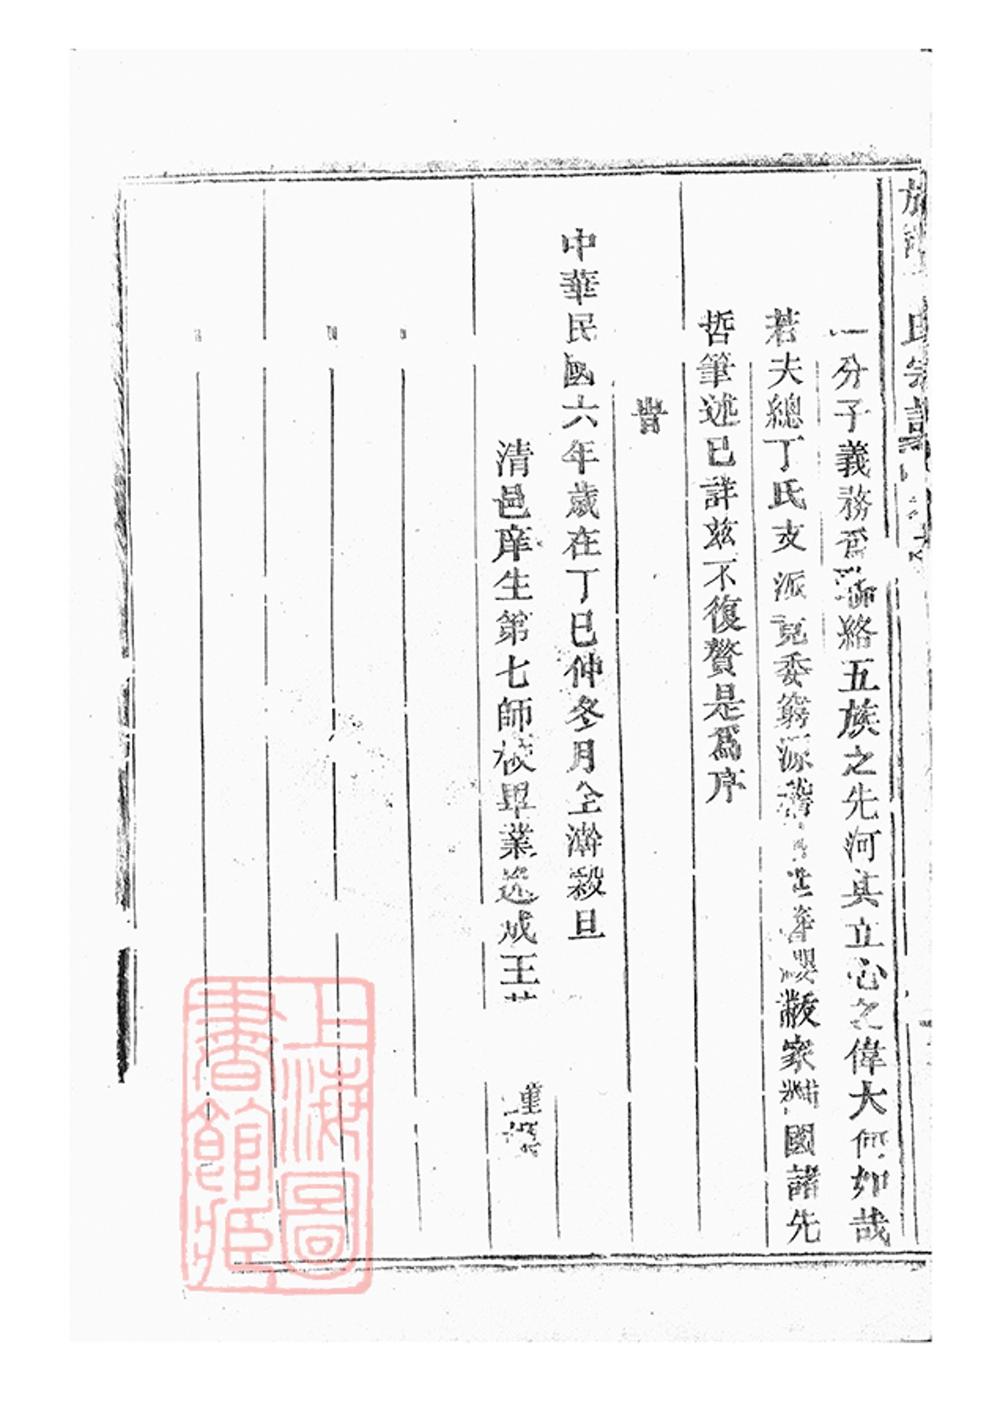 氏宗譜
一分子義務爲聯絡五族之先河其立心之偉大何如哉
若夫總丁氏支派竟委窮源 世 黻家黼國諸先
哲筆述已詳茲不復贅是爲序
旹
中華民國六年歲在丁巳仲冬月全澣穀旦
清邑庠生第七師校畢業逸成王 謹撰
上海圖書館藏